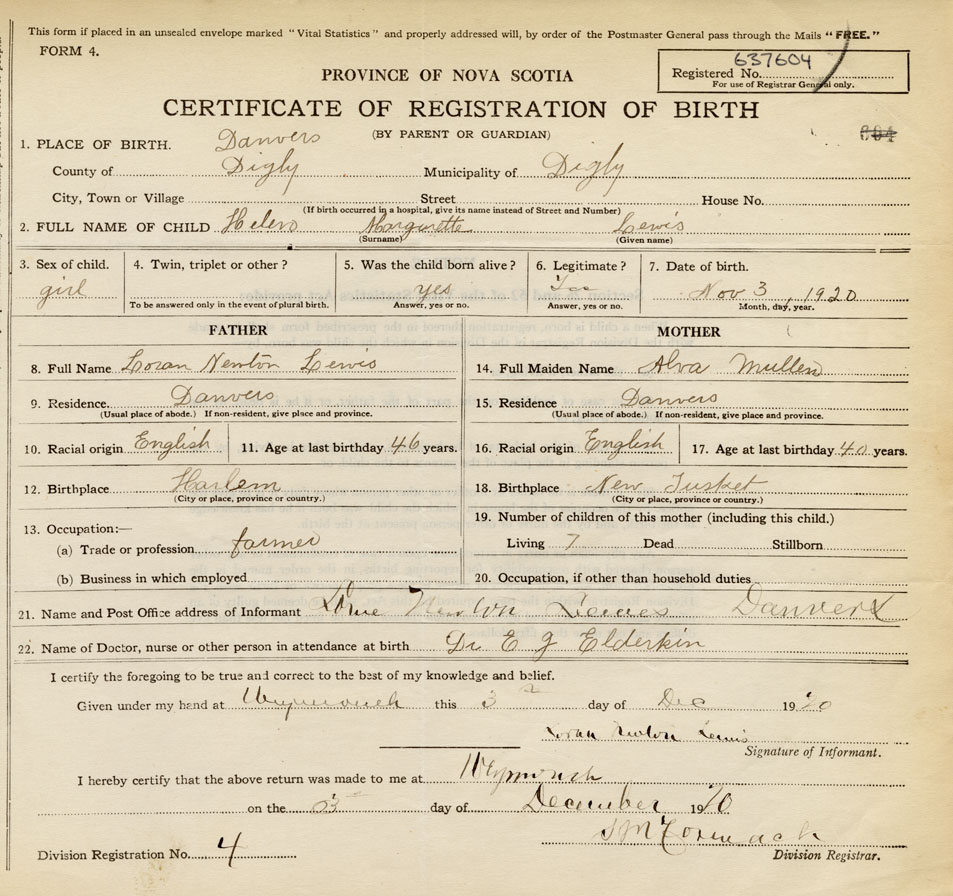 This form if placed in an unsealed envelope marked "Vital Statistics" and properly addressed will, by order of the Postmaster General pass through the Mails "FREE."
FORM 4.
637604
Registered No.
For use of Registrar General only.
PROVINCE OF NOVA SCOTIA
CERTIFICATE OF REGISTRATION OF BIRTH
(BY PARENT OR GUARDIAN)
1. PLACE OF BIRTH. Danvers
County of Digby Municipality of Digby
City, Town or Village Street House No.
(If birth occurred in a hospital, give its name instead of Street and Number)
2. FULL NAME OF CHILD Helen Margurette Lewis
(Surname) (Given name)
3. Sex of child. 4. Twin, triplet or other? 5. Was the child born alive? 6. Legitimate? 7. Date of birth.
girl yes Nov 3, 1920
To be answered only in the event of plural birth. Answer, yes or no. Answer, yes or no. Month, day, year.
FATHER MOTHER
8. Full Name Loran Newton Lewis 14. Full Maiden Name Alva Mullen
9. Residence. Danvers 15. Residence Danvers
(Usual place of abode.) If non-resident, give place and province. (Usual place of abode.) If non-resident, give place and province.
10. Racial origin English 11. Age at last birthday 46 years. 16. Racial origin English 17. Age at last birthday 40 years.
12. Birthplace Harlem 18. Birthplace New Tusket
(City or place, province or country.) (City or place, province or country.)
13. Occupation:— 19. Number of children of this mother (including this child.)
(a) Trade or profession farmer Living 7 Dead Stillborn
(b) Business in which employed 20. Occupation, if other than household duties
21. Name and Post Office address of Informant Newton Danvers
22. Name of Doctor, nurse or other person in attendance at birth Dr E J Elderkin
I certify the foregoing to be true and correct to the best of my knowledge and belief.
Given under my hand at Weymouth this 3 day of Dec 1920
Loran Newton Lewis
Signature of Informant.
I hereby certify that the above return was made to me at Weymouth
on the 3 day of December 1920
Division Registration No. 4 Division Registrar.